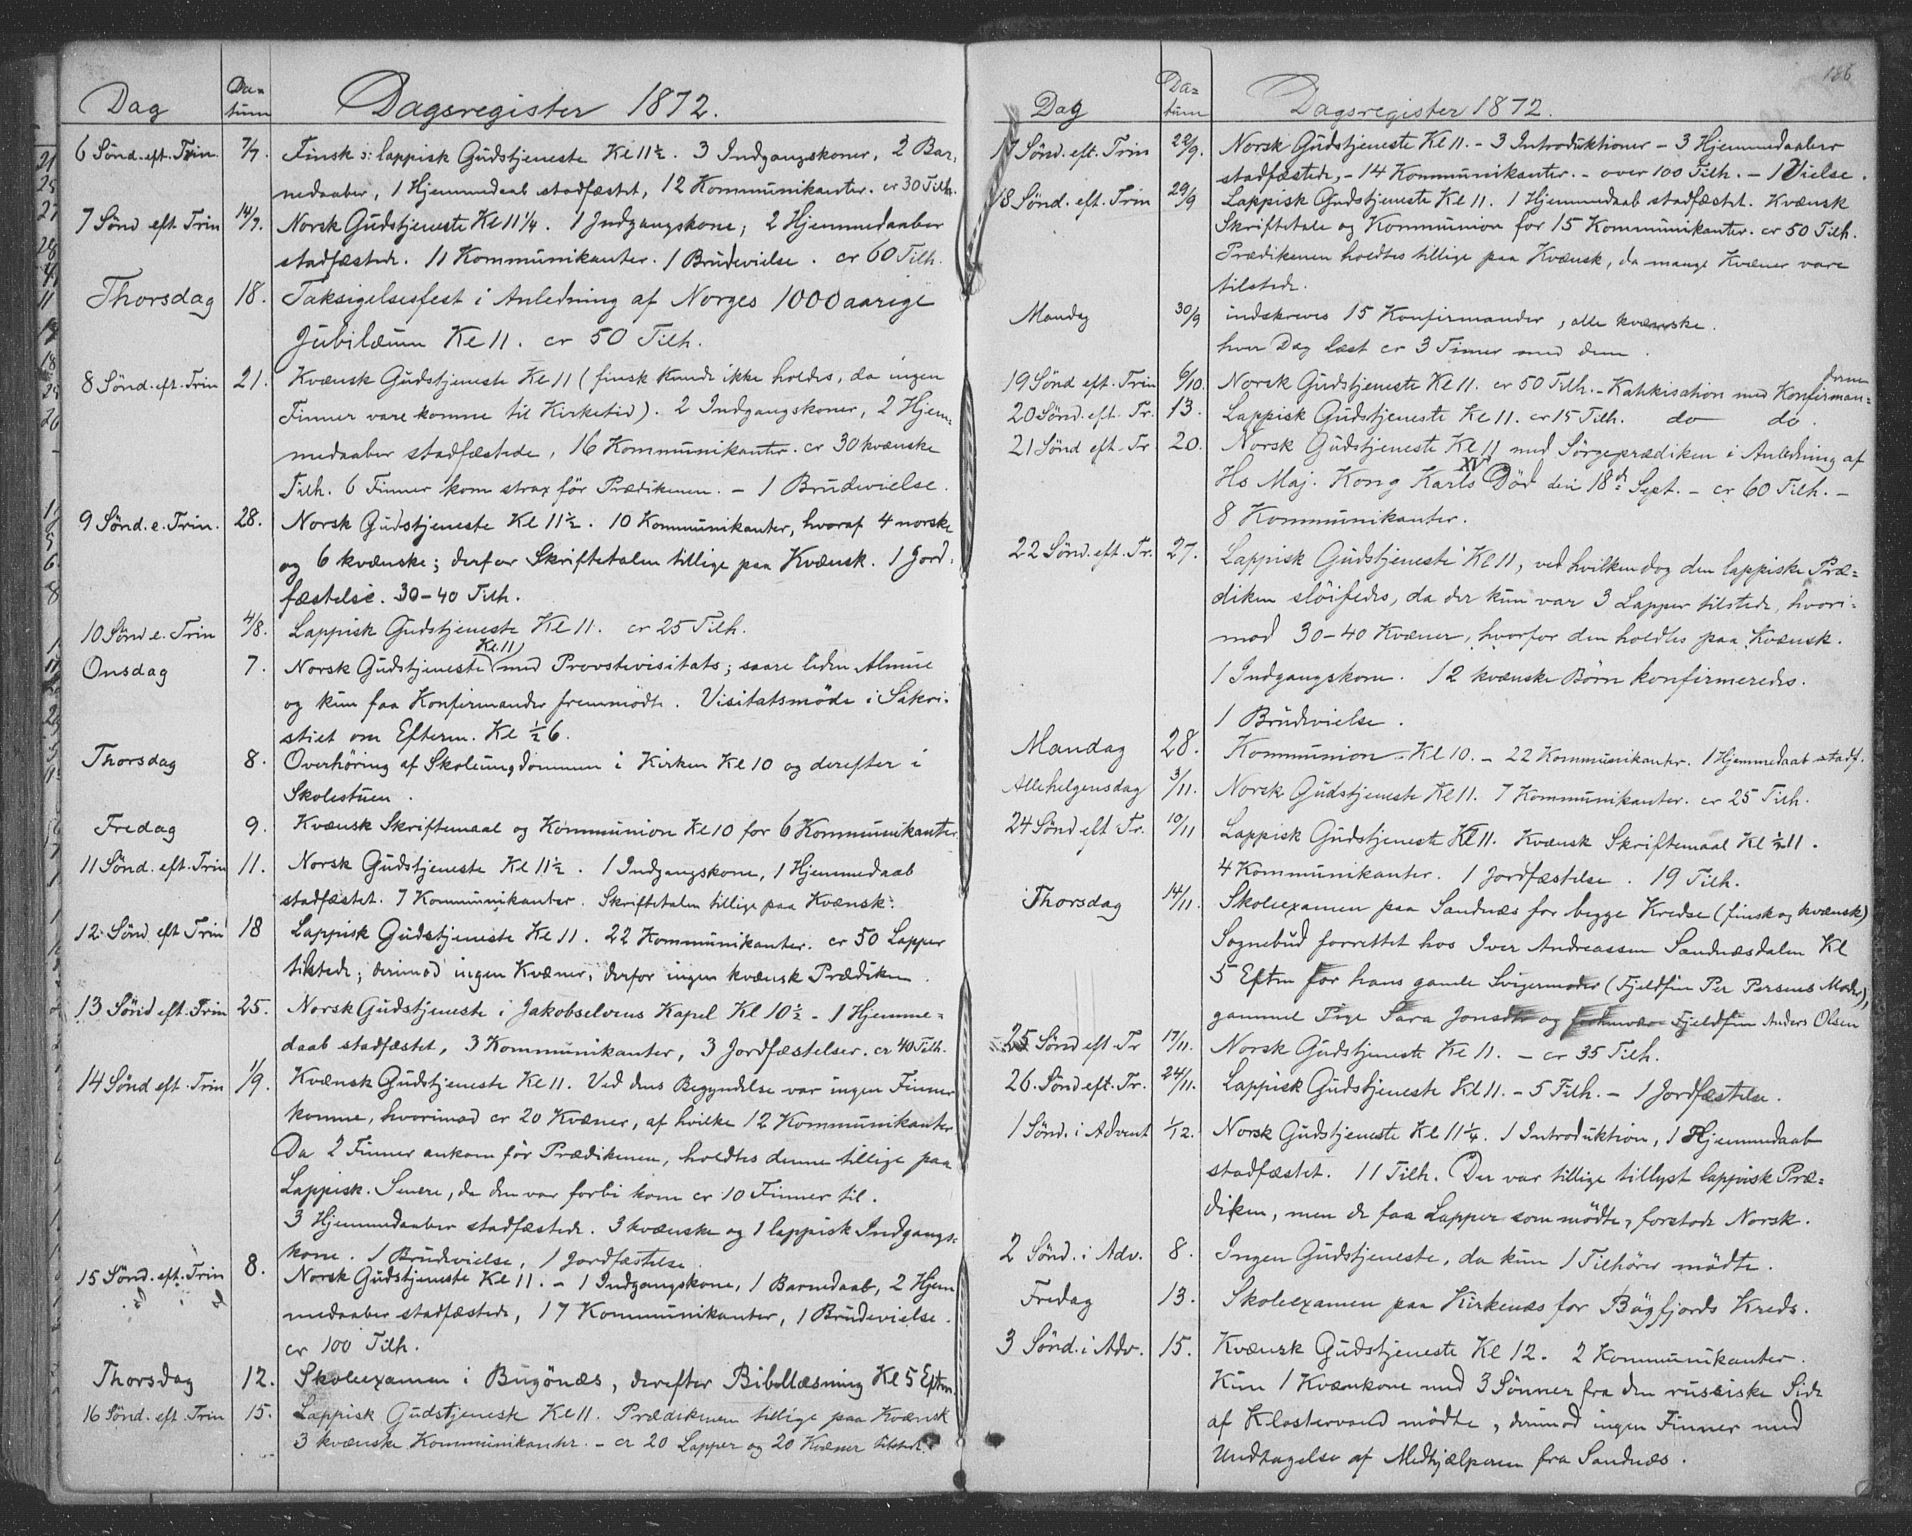 Dag Da=tum Dagsregister 1872.
6 Sönd. eft. Trin. 7/7 Finsk ɔ: lappisk Gudstjeneste Kl 11½. 3 Indgangskoner, 2 Bar-
nedaaber, 1 Hjemmedaab stadfæstet, 12 Kommunikanter. cr 30 Tilh.
7 Sönd eft Trin 14/7. Norsk Gudstjeneste Kl 11¼. 1 Indgangskone, 2 Hjemmedaaber
stadfæstede. 11 Kommunikanter. 1 Brudevielse. cr 60 Tilh.
Thorsdag 18. Taksigelsesfest i Anledning af Norges 1000 aarige
Jubilæum Kl 11. cr 50 Tilh.
8 Sönd. eft. Trin 21. Kvænsk Gudstjeneste Kl 11 (finsk kunde ikke holdes, da ingen
Finner vare komne til Kirketid). 2 Indgangskoner, 2 Hjem-
medaaber stadfæstede, 16 Kommunikanter. cr 30 kvænske
Tilh. 6 Finner kom strax för Prædikenen. – 1 Brudevielse.
9 Sönd. e. Trin. 28. Norsk Gudstjeneste Kl 11½. 10 Kommunikanter, hvoraf 4 norske
og 6 kvænske; derfor Skriftetalen tillige paa Kvænsk. 1 Jord-
fæstelse. 30–40 Tilh.
10 Sönd e. Trin 4/8. Lappisk Gudstjeneste Kl 11. cr 25 Tilh.
Onsdag 7. Norsk Gudstjeneste Kl. 11 med Provstevisitats; saare liden Almue
og kun faa Konfirmander fremmödte. Visitatsmöde i Sakri-
stiet om Efterm. Kl ½6.
Thorsdag 8. Overhöring af Skoleungdommen i Kirken Kl 10 og derefter i
Skolestuen.
Fredag 9. Kvænsk Skriftemaal og Kommunion Kl 10 for 6 Kommunikanter
11 Sönd. eft. Trin 11. Norsk Gudstjeneste Kl 11½. 1 Indgangskone, 1 Hjemmedaab
stadfæstet. 7 Kommunikanter. Skriftetalen tillige paa Kvænsk.
12 Sönd eft Trin 18 Lappisk Gudstjeneste Kl 11. 22 Kommunikanter. cr 50 Lapper
tilstede; derimod ingen Kvæner, derfor ingen kvænsk Prædiken.
13 Sönd eft. Trin 25. Norsk Gudstjeneste i Jakobselvens Kapel Kl 10½ – 1 Hjemme=
daab stadfæstet, 3 Kommunikanter, 3 Jordfæstelser. cr 40 Tilh.
14 Sönd eft. Trin 1/9. Kvænsk Gudstjeneste Kl 11. Ved dens Begyndelse var ingen Finner
komne, hvorimod cr 20 Kvæner, af hvilke 12 Kommunikanter
Da 2 Finner ankom för Prædikenen, holdtes denne tillige paa
Lappisk. Senere, da den var forbi kom cr 10 Finner til.
3 Hjemmedaaber stadfæstede. 3 kvænske og 1 lappisk Indgangs=
kone. 1 Brudevielse, 1 Jordfæstelse
15 Sönd. eft. Trin 8. Norsk Gudstjeneste Kl 11. – 1 Indgangskone, 1 Barnedaab, 2 Hjem
medaaber stadfæstede, 17 Kommunikanter, 1 Brudevielse.
cr 100 Tilh.
Thorsdag 12. Skoleexamen i Bugönæs, derefter Bibellæsning Kl 5 Eftm.
16 Sönd. eft. Trin 15. Lappisk Gudstjeneste Kl 11. Prædikenen tillige paa Kvænsk
3 kvænske Kommunikanter. – cr 20 Lapper og 20 Kvæner tilstede.
186
Dag Da=tum Dagsregister 1872.
17 Sönd. eft. Trin 22/9. Norsk Gudstjeneste Kl 11. – 3 Introduktioner – 3 Hjemmedaaber
stadfæstede, – 14 Kommunikanter. – over 100 Tilh. – 1 Vielse.
18 Sönd. eft. Trin 29/9 Lappisk Gudstjeneste Kl 11. 1 Hjemmedaab stadfæstet. Kvænsk
Skriftetale og Kommunion for 15 Kommunikanter. cr 50 Tilh.
Prædikenen holdtes tillige paa Kvænsk, da mange Kvæner vare
tilstede.
Mandag 30/9 indskreves 15 Konfirmander, alle kvænske.
hver Dag læst cr 3 Timer med dem.
19 Sönd eft. Trin 6/10. Norsk Gudstjeneste Kl 11. cr 50 Tilh. – Katekisation med Konfirman=
derne
20 Sönd. eft. Tr. 13. Lappisk Gudstjeneste Kl 11. cr 15 Tilh. do do.
21 Sönd eft. Tr 20. Norsk Gudstjeneste Kl 11 med Sörgeprædiken i Anledning af
Hs Maj. Kong Karls XV Död den 18de Sept. – cr 60 Tilh. –
8 Kommunikanter.
22 Sönd. eft. Tr. 27. Lappisk Gudstjeneste Kl 11, ved hvilken dog den lappiske Præ=
diken slöifedes, da der kun var 3 Lapper tilstede, hvori-
mod 30–40 Kvæner, hvorfor den holdtes paa Kvænsk.
1 Indgangskone. 12 kvænske Börn konfirmeredes.
1 Brudevielse.
Mandag 28. Kommunion Kl 10. – 22 Kommunikanter. 1 Hjemmedaab stadf.
Allehelgensdag 3/11. Norsk Gudstjeneste Kl 11. 7 Kommunikanter. cr 25 Tilh.
24 Sönd eft Tr. 10/11 Lappisk Gudstjeneste Kl 11. Kvænsk Skriftemaal Kl ½11.
4 Kommunikanter. 1 Jordfæstelse. 19 Tilh.
Thorsdag 14/11. Skoleexamen paa Sandnæs for begge Kredse (finsk og kvænsk)
Sognebud forrettet hos Iver Andreassen Sandnæsdalen Kl
5 Eftm for hans gamle Svigermoder (Fjeldfin Per Persens Moder),
gammel Pige Sara Jonsdtr og Fjeldfin Anders Olsen
25 Sönd eft. Tr 17/11. Norsk Gudstjeneste Kl 11. – cr 35 Tilh.
26. Sönd eft. Tr. 24/11. Lappisk Gudstjeneste Kl 11. – 5 Tilh. – 1 Jordfæstelse.
1 Sönd. i Advent 1/12. Norsk Gudstjeneste Kl 11¼. 1 Introduktion, 1 Hjemmedaab
stadfæstet. 11 Tilh. Der var tillige tillyst lappisk Præ=
diken, men de faa Lapper som mödte, forstode Norsk.
2 Sönd. i Adv. 8. Ingen Gudstjeneste, da kun 1 Tilhörer mödte.
Fredag 13. Skoleexamen paa Kirkenæs for Bögfjords Kreds.
3 Sönd. i Adv. 15. Kvænsk Gudstjeneste Kl 12. 2 Kommunikanter.
Kun 1 Kvænkone med 3 Sönner fra den russiske Side
af Klostervand mödte, derimod ingen Finner med
Undtagelse af Medhjælperen fra Sandnæs.